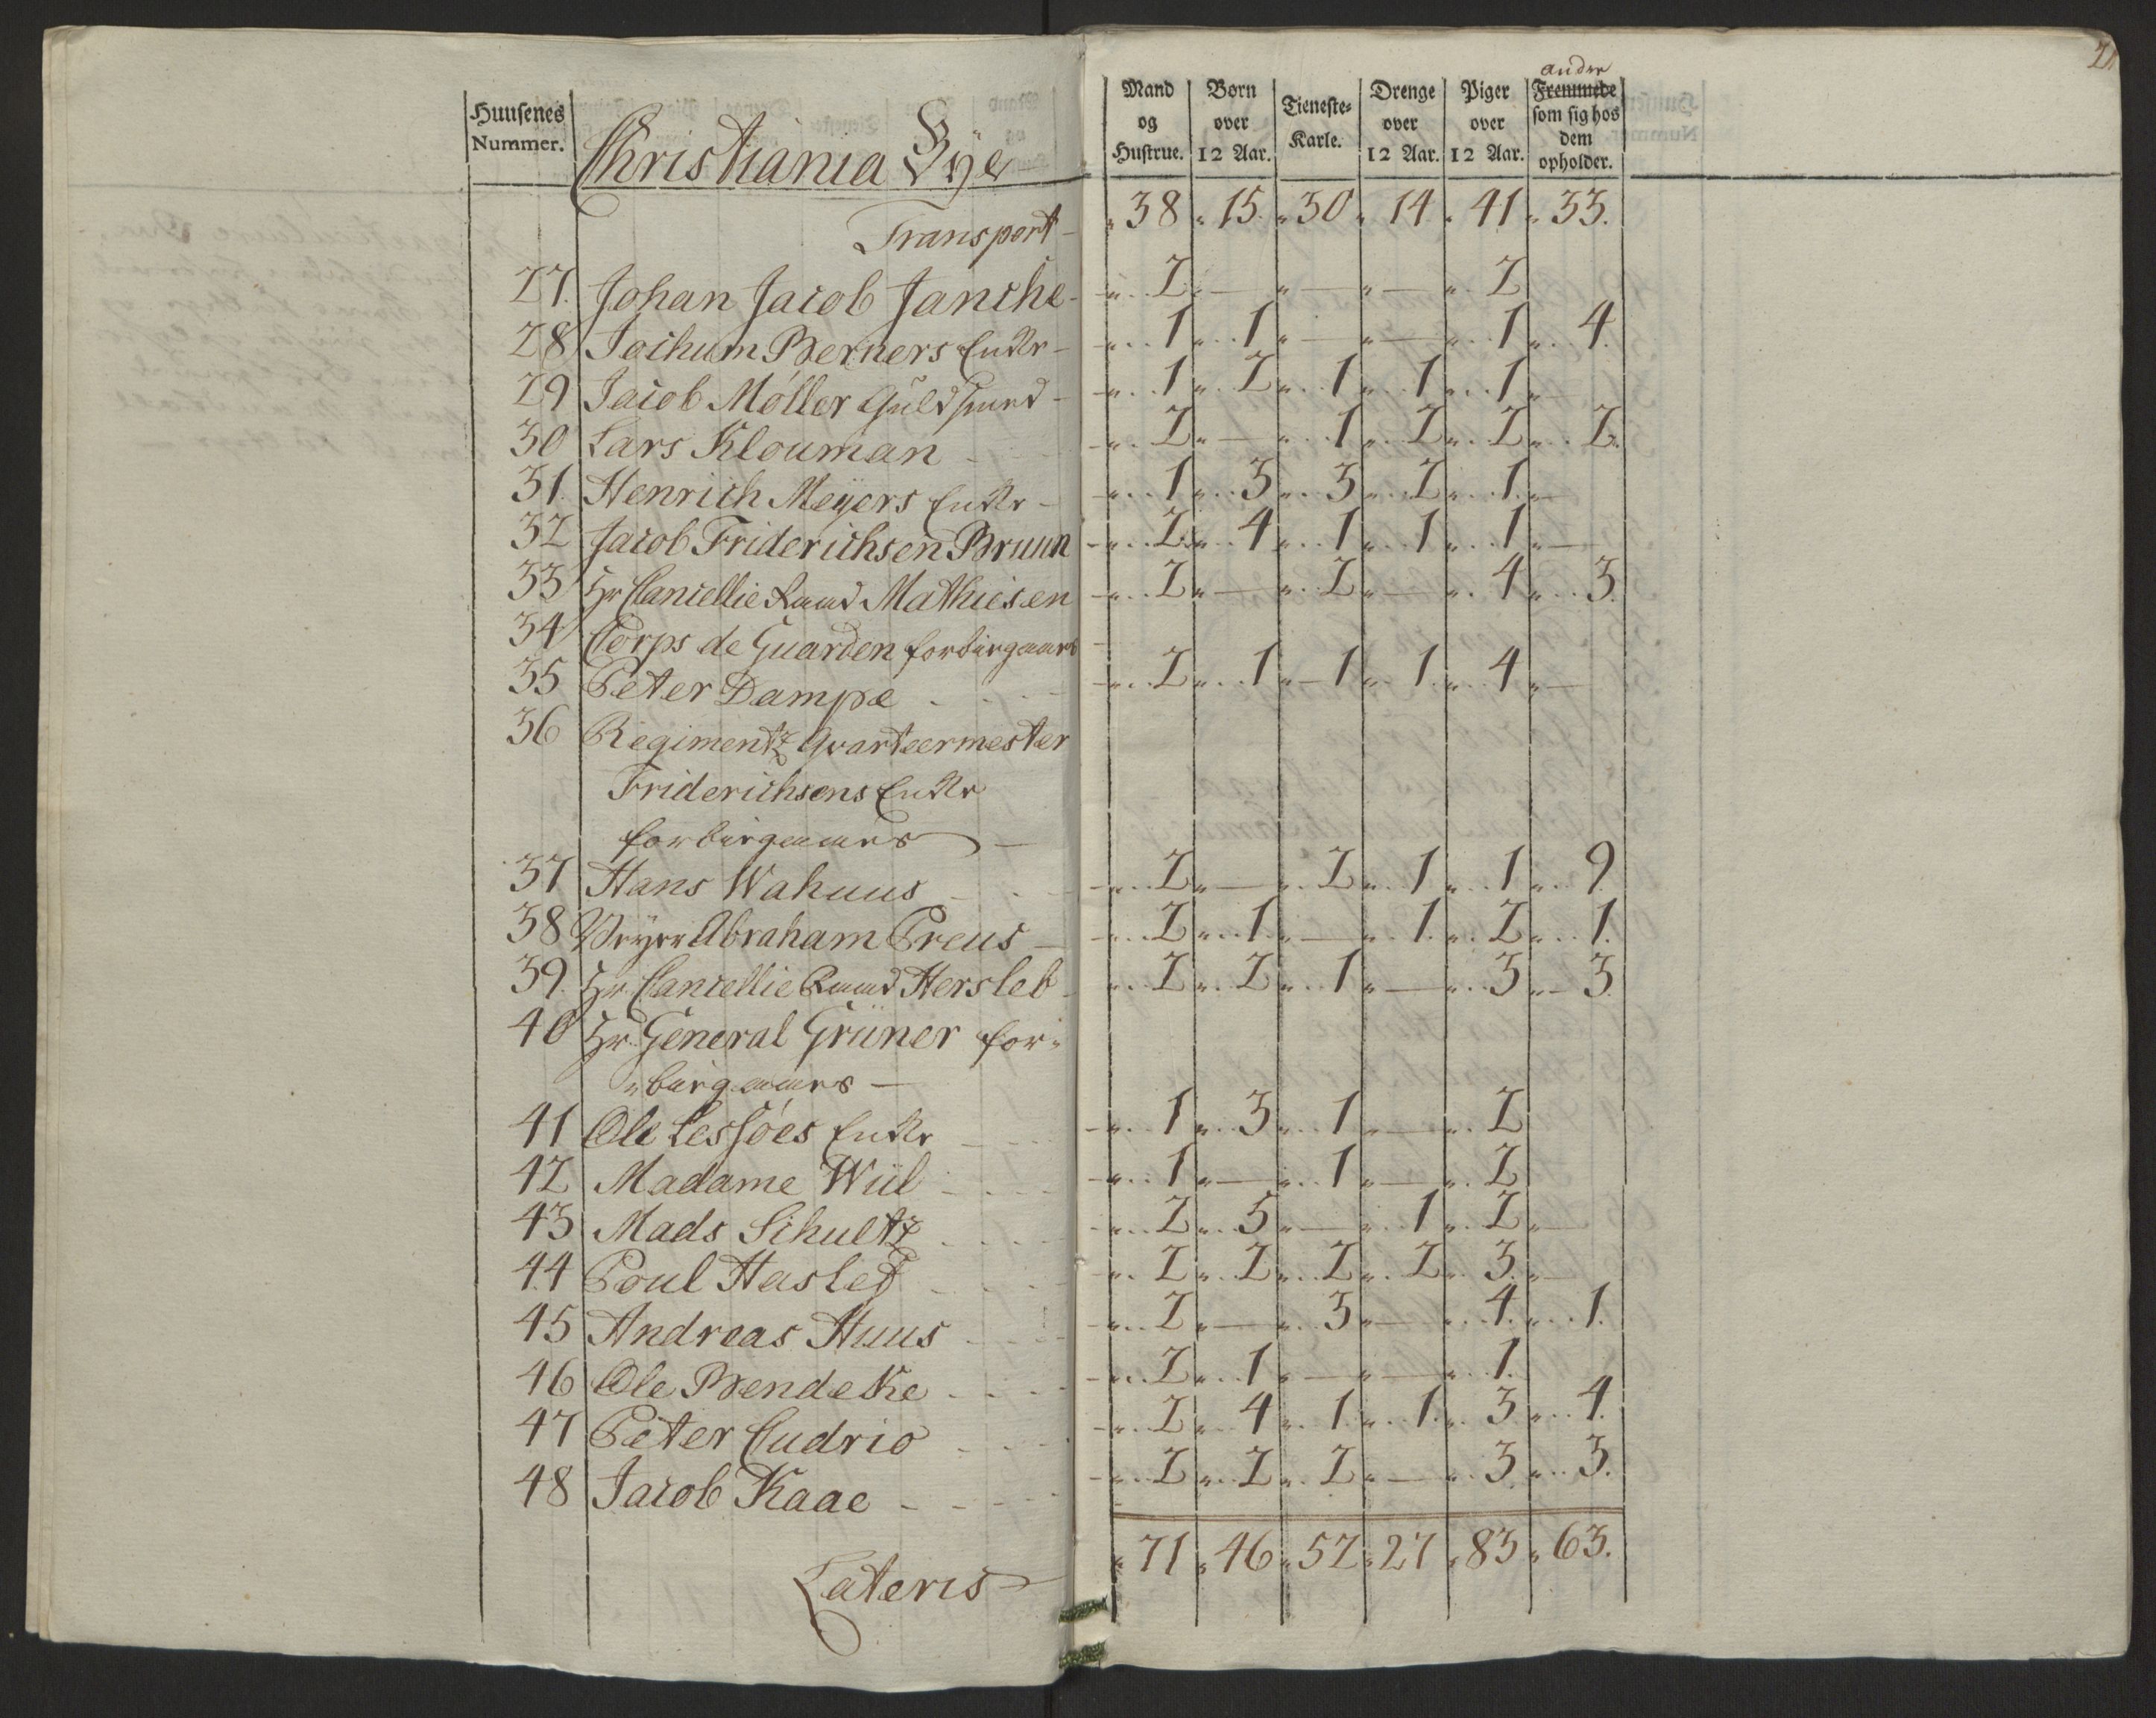 2
Huusenes Nummer. Christiania Bÿe Mand og Hustrue. Børn over 12 Aar. Tieneste-Karle. Drenge over 12 Aar. Piger over 12 Aar. andre Fremmede som sig hos dem opholder.
Transport 38 15. 30 14 41 33.
27. Johan Jacob Janche 2 — — — 2
28 Jochum Berners Enke 1 1 — — 1 4.
29 Jacob Møller Guldsmed 1 2 1 1 1 —
30 Lars Klouman 2 — 1 2 2 2.
31. Henrich Meÿers Enke 1 3 3 2 1. —
32 Jacob Friderichsen Bruun 2 4 1 1 1 —
33 Hr Cancellie Raad Mathiesen 2 — 2 — 4 3.
34 Corps de Guarden forbigaaes
35 Peter Dampe 2 1 1 1. 4 —
36 Regimentz Qvarteermester
Friderichsens Enke
forbigaaes —
37 Hans Wahuus 2 — 2 1 1 9.
38 Abraham Preus 2 1. — 1. 2 1.
39. Hr. Cancellie Raad Hersleb 2 2 1 — 3 3.
40 Hr. General Grüner for-
bigaaes —
41 Ole Lessøes Enke 1 3 1 — 2
42 Madame Wiil 1 — 1 — 2
43 Mads Schultz 2 5 — 1 2 —
44 Poul Hasled 2 2 2 2 3. —
45 Andreas Huus 2 — 3 — 4. 1.
46 Ole Bendeke 2 1 — — 1.
47 Peter Cudrio 2 4 1. 1. 3 4.
48 Jacob Kaae 2 2 2 — 3 3.
Lateris 71 46 52 27 83 63.